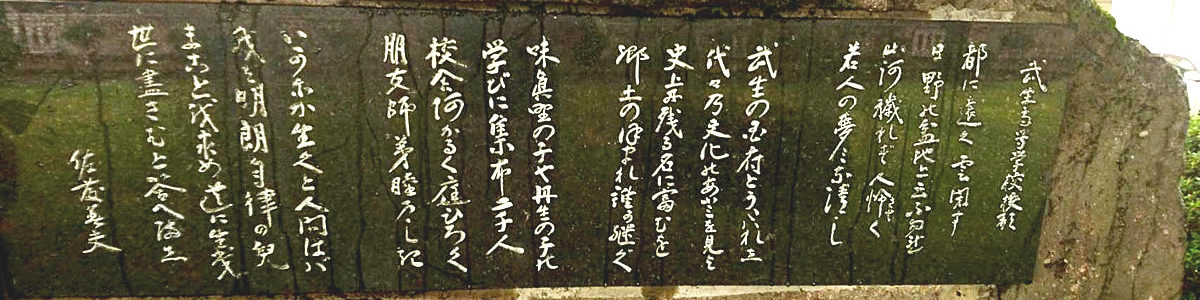 武生高等学校校歌
都に遠く雲閉す
日野の盆地と云ふ勿れ
山河穢れず人怜く
若人の夢 清し
武生の国府とうたはれし
代々の文化のあとを見よ
史上に残る名に富むを
郷土のほまれ誰か継ぐ
味真野の子や丹生の子の
学びに集ふ二千人
校舎あかるく庭ひろく
朋友師弟睦ましき
いかにか生くと人問はば
我は明朗自律の児
まことを求め道に生き
世に盡さむと答へまし
佐藤春夫